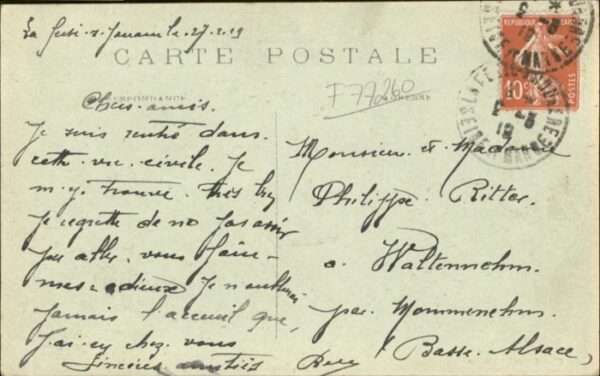 La Ferté-s-Jouarre le 27-2-19
CARTE POSTALE
F77260
CORRESPONDANCE
ADRESSE
REPUBLIQUE FRANÇAISE
10c
POSTES
LA FERTE-SOUS-JOUARRE
SEINE-ET-MARNE
Chers amis.
Je suis rentré dans
cette vie civile. Je
m'y trouve très bien
Je regrette de ne pas avoir
pu aller vous faire
mes adieux Je n'oublierai
jamais l'accueil que,
j'ai eu chez vous
Sincères amitiés
Monsieur et Madame
Philippe Ritter.
a Waltenhehm.
par Mommenehm.
Basse-Alsace,